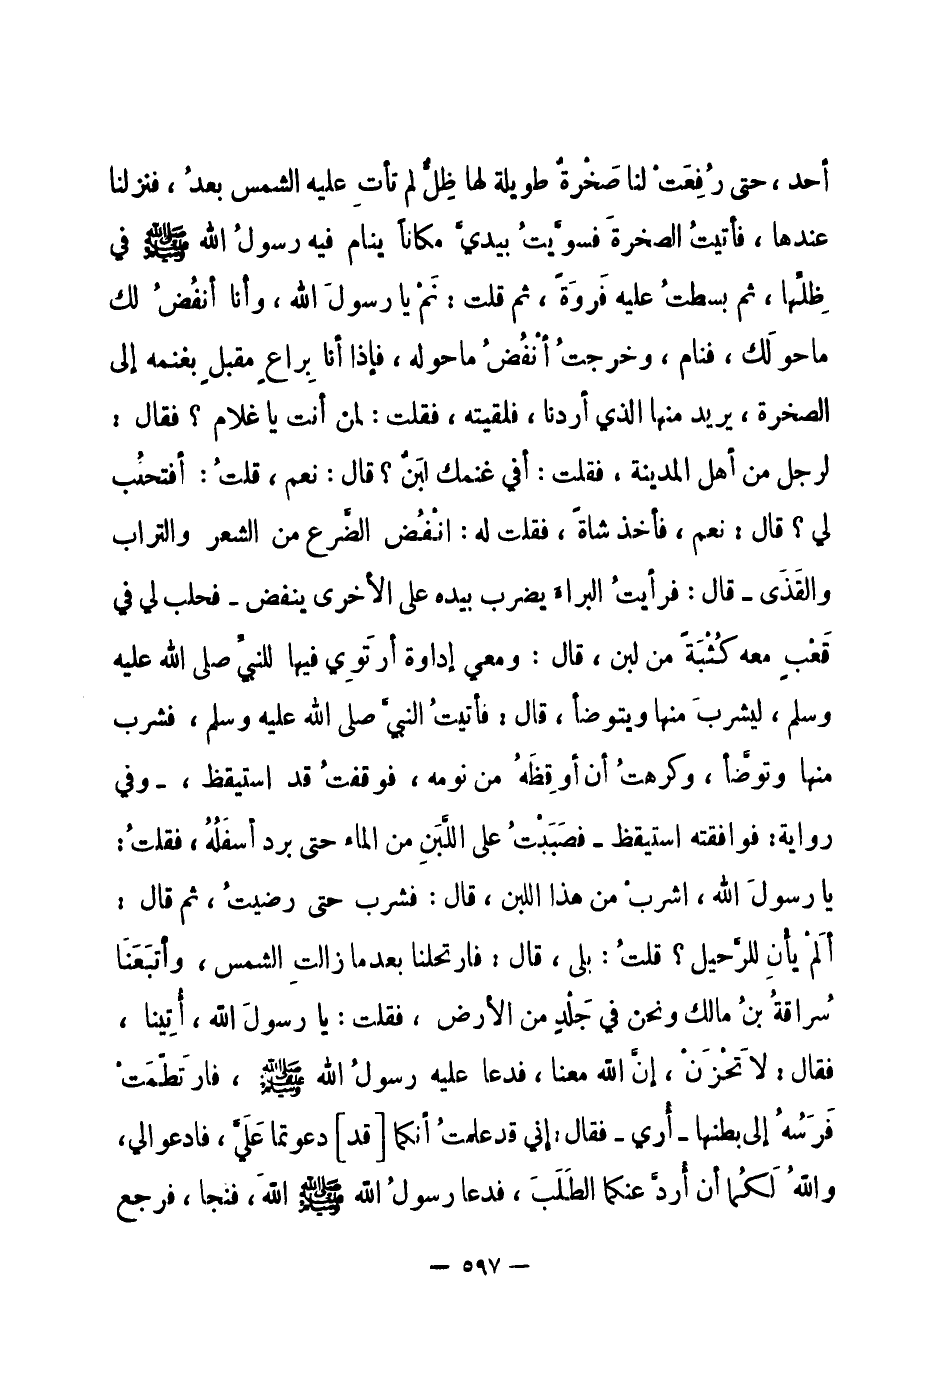 أحد ، حتى رُفِعَتْ لنا صَخْرةٌ طويلة لها ظِلٌّ لم تأتِ عليه الشمس بعدُ ، فنزلنا
عندها ، فأتيتُ الصخرةَ فسوَّيتُ بيديَّ مكاناً ينام فيه رسولُ الله ﷺ في
ظِلِّها ، ثم بسطتُ عليه فَروَةً ، ثم قلت : نَمْ يا رسولَ الله ، وأنا أنفُضُ لك
ماحولَك ، فنام ، وخرجتُ أنْفُضُ ماحوله ، فإذا أنا بِراعٍ مقبلٍ بغنمه إلى
الصخرة ، يريد منها الذي أردنا ، فلقيته ، فقلت : لمن أنت يا غلام ؟ فقال :
لرجل من أهل المدينة ، فقلت : أفي غنمك لبَنٌ ؟ قال : نعم ، قلتُ : أفتحلُب
لي ؟ قال : نعم ، فأخذ شاةً ، فقلت له : انْفُض الضَّرع من الشعر والتراب
والقَذَى ـ قال : فرأيتُ البراءَ يضرب بيده على الأخرى ينفض ـ فحلب لي في
قَعْبٍ معه كُثْبَةً من لبن ، قال : ومعي إداوة أرتَوِي فيها للنبيِّ صلى الله عليه
وسلم ، ليشربَ منها ويتوضأ ، قال : فأتيتُ النبيَّ صلى الله عليه وسلم ، فشرب
منها وتوضَّأ ، وكرهتُ أن أوقِظَهُ من نومه ، فوقفتُ قد استيقظ ، ـ وفي
رواية : فوافقته استيقظ ـ فصَبَبْتُ على اللَّبَنِ من الماء حتى برد أسفَلُهُ ، فقلتُ :
يا رسولَ الله ، اشربْ من هذا اللبن ، قال : فشرب حتى رضيتُ ، ثم قال :
ألَمْ يأنِ للرَّحيل ؟ قلتُ : بلى ، قال : فارتحلنا بعدما زالتِ الشمس ، وأتبَعَنَا
سُراقةُ بنُ مالك ونحن في جَلْدٍ من الأرض ، فقلت : يا رسولَ الله ، أُتِينا ،
فقال : لا تَحْزَنْ ، إنَّ الله معنا ، فدعا عليه رسولُ الله ﷺ ، فارتَطَمَتْ
فَرَسُهُ إلى بطنها ـ أُرى ـ فقال : إني قد علمتُ أنكما [ قد ] دعوتما عَلَيَّ ، فادعوا لي ،
واللهُ لَكُما أن أُردَّ عنكما الطَلَبَ ، فدعا رسولُ الله ﷺ اللهَ ، فنجا ، فرجع
— ٥٩٧ —